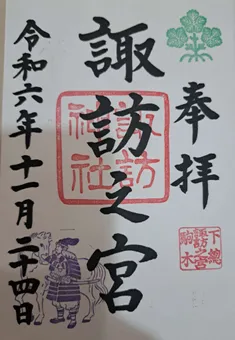 奉拝
諏訪之宮
諏訪神社
下總
諏訪之宮
駒木
令和六年十一月二十四日